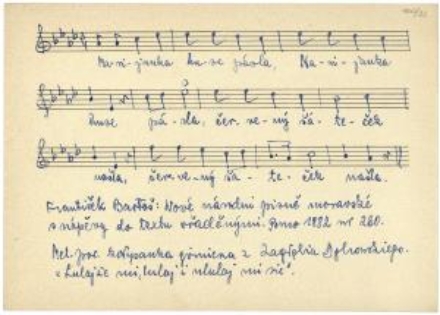 Ma-ri-janka hu-se pásla, Ma-ri-janka
huse pá-sla, čer-ve-ný šá-te-ček
našla, čer-ve-ný šá-te-ček našla.
František Bartoš: Nové národní písně moravské
s nápěvy do textu vřaděnými. Brno 1882 nr 260.
Met. por. Kołysanka gminna z Zagłębia Dąbrowskiego.
"Lulajże mi, lulaj i ululuj mi się".